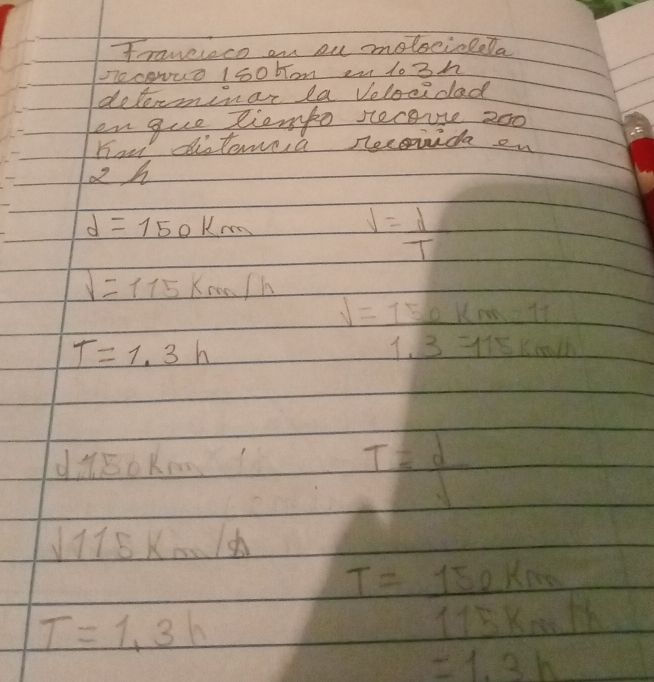 Francisco en su motocicleta
recorrio 150 Km en 1.3 h
determinar la Velocidad
en que tiempo recorre 200
Km distancia recorrida en
2 h
d = 150 Km
V = d
T
V = 115 Km/h
V = 150 Km
1.3 = 115 Km/h
T = 1.3 h
d 150 Km
T = d
V
V 115 Km/h
T = 150 Km
115 Km/h
T = 1.3 h
= 1.3 h